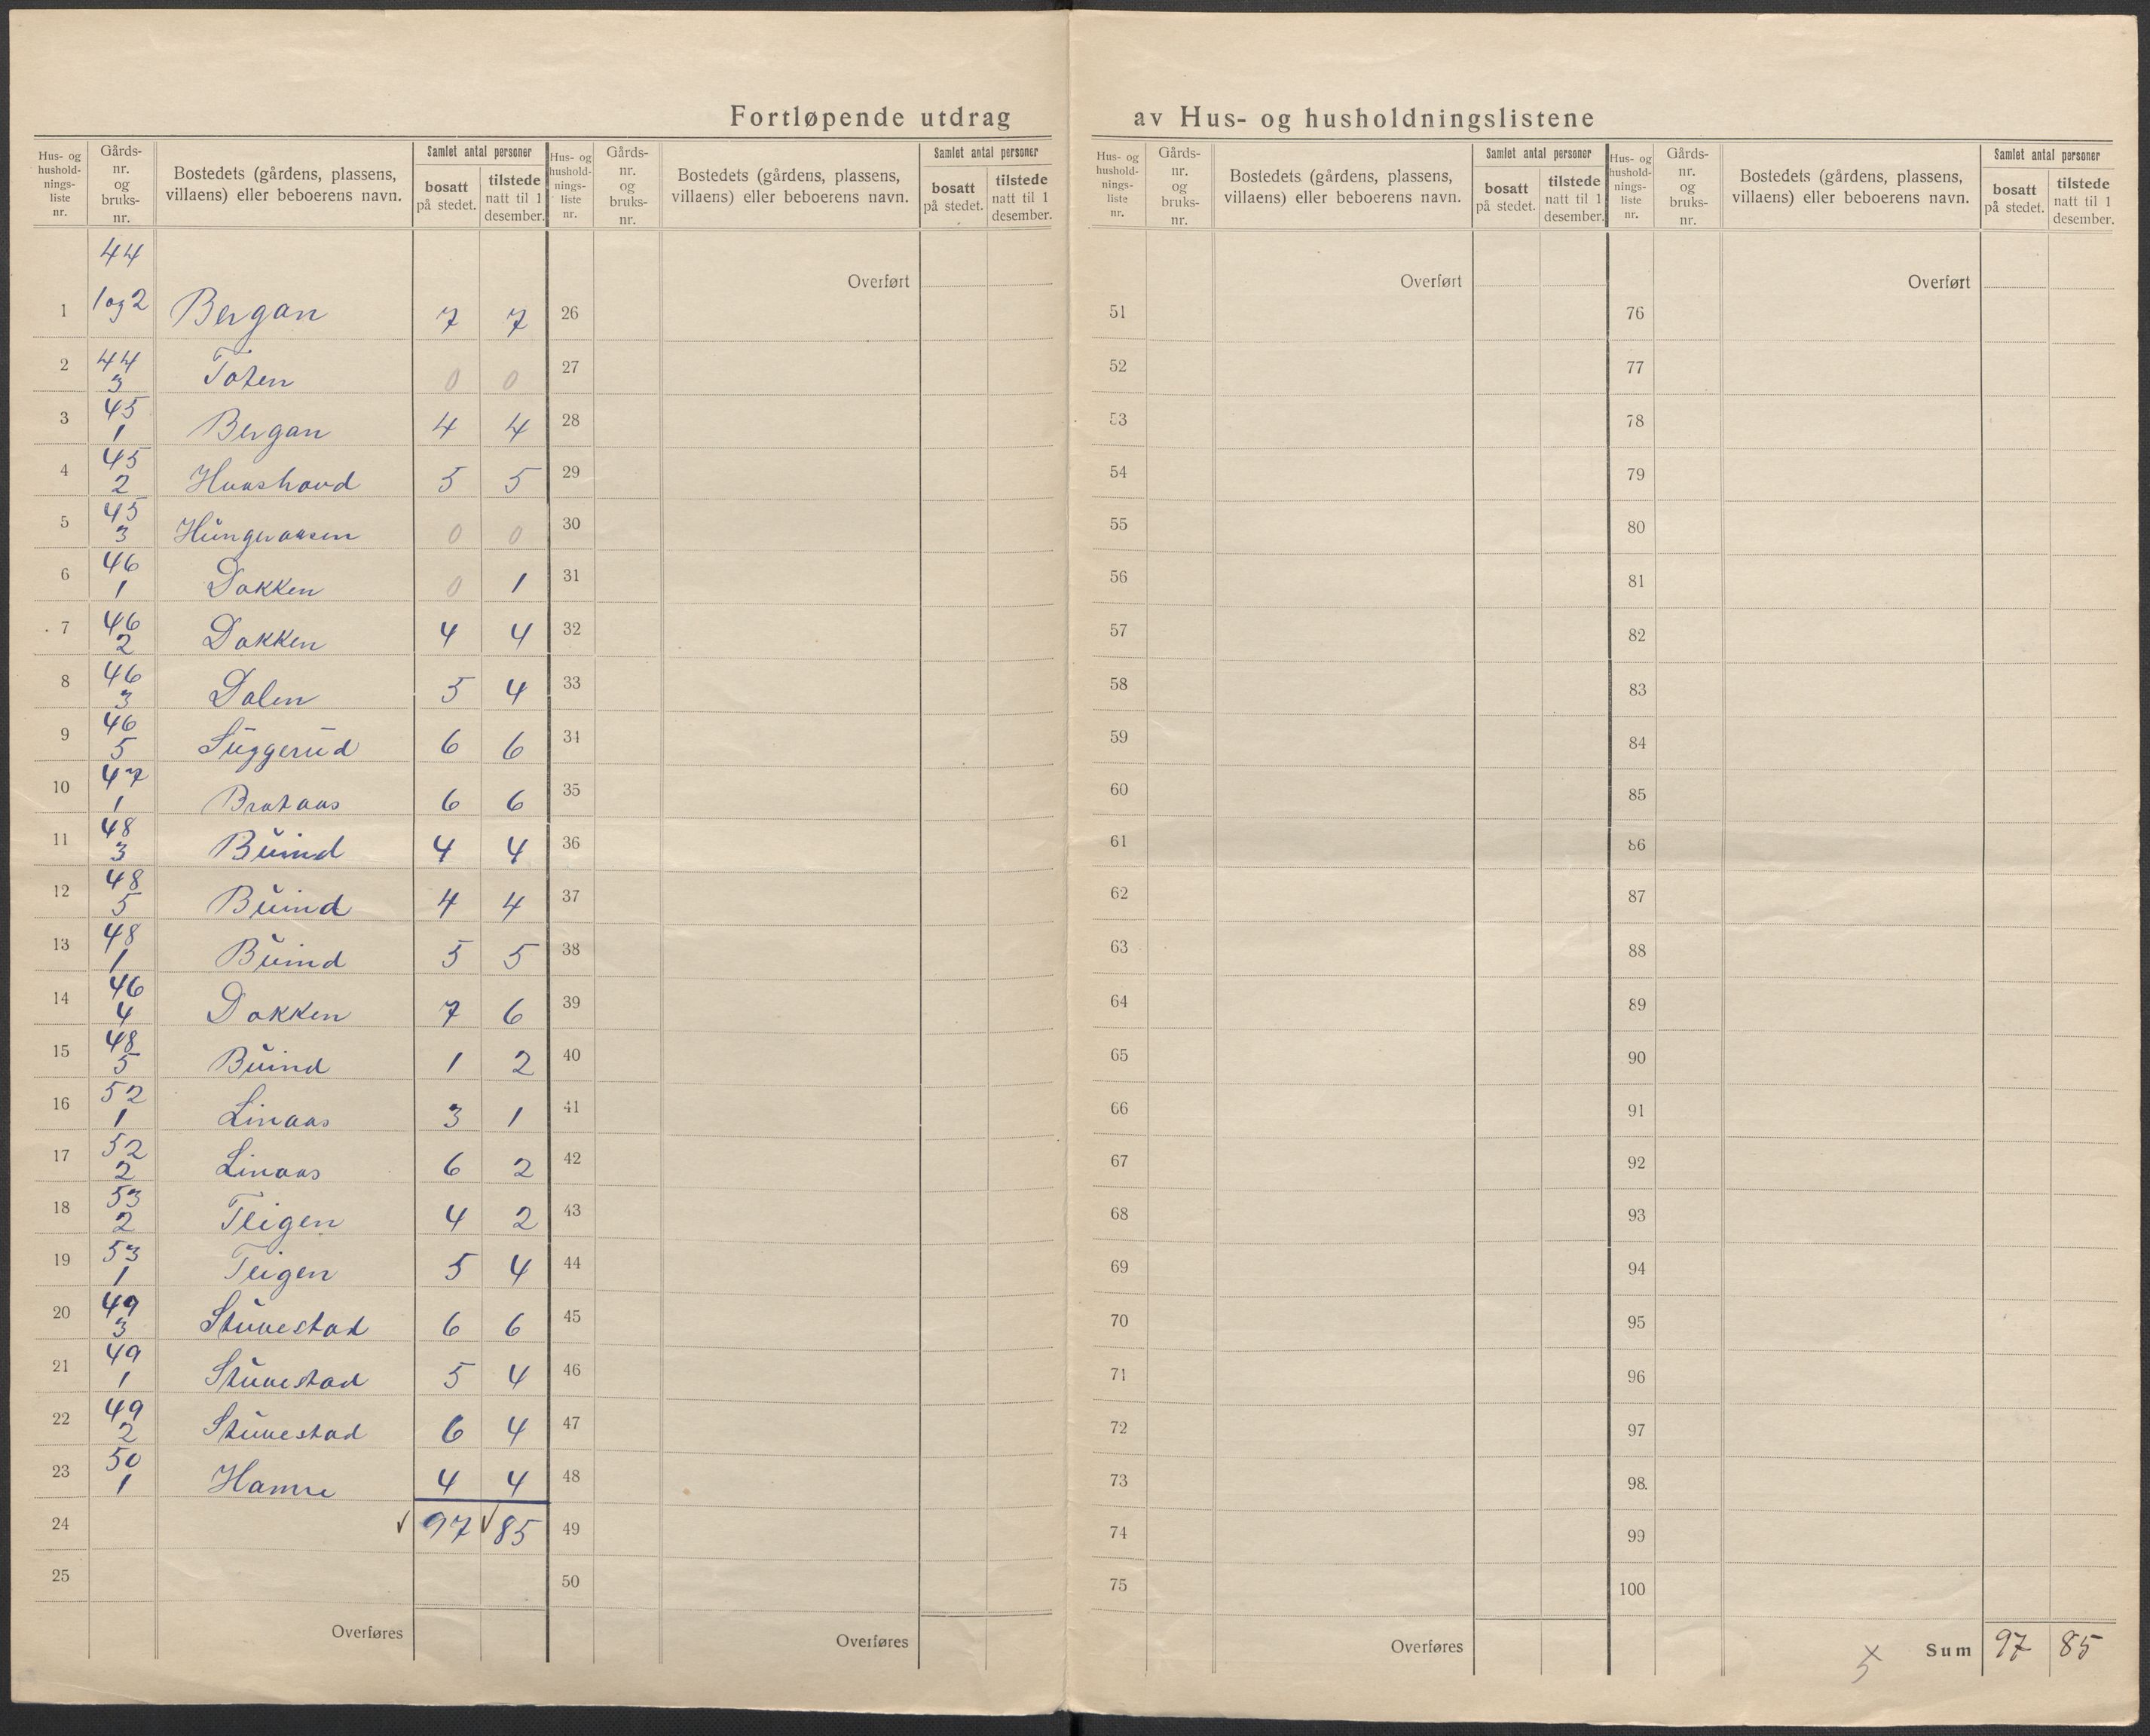 Fortløpende utdrag av Hus- og husholdningslistene
Hus- og hushold-nings-liste nr. | Gårds-nr. og bruks-nr. | Bostedets (gårdens, plassens, villaens) eller beboerens navn. | Samlet antal personer | bosatt på stedet. | tilstede natt til 1 desember.
Hus- og hushold-nings-liste nr. | Gårds-nr. og bruks-nr. | Bostedets (gårdens, plassens, villaens) eller beboerens navn. | Samlet antal personer | bosatt på stedet. | tilstede natt til 1 desember.
Hus- og hushold-nings-liste nr. | Gårds-nr. og bruks-nr. | Bostedets (gårdens, plassens, villaens) eller beboerens navn. | Samlet antal personer | bosatt på stedet. | tilstede natt til 1 desember.
Hus- og hushold-nings-liste nr. | Gårds-nr. og bruks-nr. | Bostedets (gårdens, plassens, villaens) eller beboerens navn. | Samlet antal personer | bosatt på stedet. | tilstede natt til 1 desember.
Overført Overført Overført
1 44 1og2 Bergan 7 7 26 51 76
2 44 3 Toten 0 0 27 52 77
3 45 1 Bergan 4 4 28 53 78
4 45 2 5 5 29 54 79
5 45 3 0 0 30 55 80
6 46 1 Dokken 0 1 31 56 81
7 46 2 Dokken 4 4 32 57 82
8 46 3 Dalen 5 4 33 58 83
9 46 5 Suggerud 6 6 34 59 84
10 47 1 Brataas 6 6 35 60 85
11 48 3 Buind 4 4 36 61 86
12 48 5 Buind 4 4 37 62 87
13 48 1 Buind 5 5 38 63 88
14 46 4 Dokken 7 6 39 64 89
15 48 5 Buind 1 2 40 65 90
16 52 1 Linaas 3 1 41 66 91
17 52 2 Linaas 6 2 42 67 92
18 53 2 Teigen 4 2 43 68 93
19 53 1 Teigen 5 4 44 69 94
20 49 3 Stuvestad 6 6 45 70 95
21 49 1 Stuvestad 5 4 46 71 96
22 49 2 Stuvestad 6 4 47 72 97
23 50 1 Hamre 4 4 48 73 98
24 97 85 49 74 99
25 50 75 100
Overføres Overføres Overføres Sum 97 85